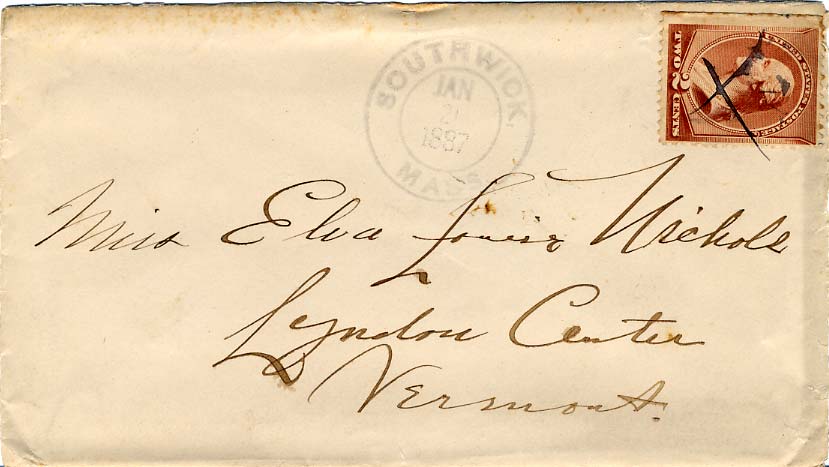 SOUTHWICK.
JAN
1887
MASS
UNITED STATES POSTAGE
TWO 2 CENTS
Miss Elva Louise Nichols
Lyndon Center
Vermont.